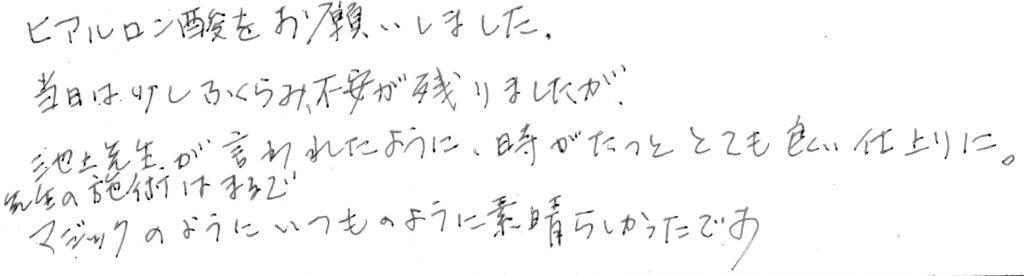 ヒアルロン酸をお願いしました。
当日は少しふくらみ、不安が残りましたが、
池上先生が言われたように、時がたつととても良い仕上りに。
先生の施術はまるで
マジックのようにいつものように素晴らしかったです